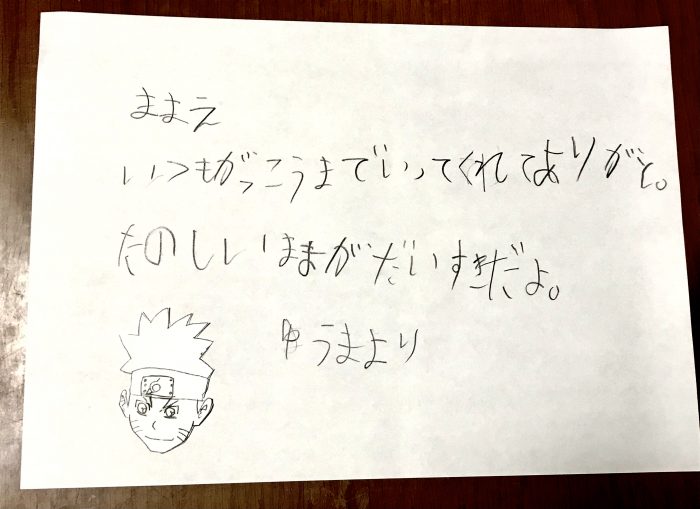 ままえ
いつもがっこうまでいってくれてありがと。
たのしいままがだいすきだよ。
ゆうまより